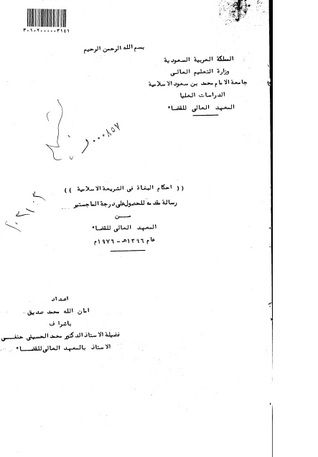 ٣٠١٠٢٠٠٠٠٠٣١٤٦
بسم الله الرحمن الرحيم
المملكة العربية السعودية
وزارة التعليم العالى
جامعة الامام محمد بن سعود الاسلامية
الدراسات العليا
المعهد العالى للقضاء
(( احكام البغاة فى الشريعة الاسلامية ))
رسالة مقدمة للحصول على درجة الماجستير
من
المعهد العالى للقضاء
عام ١٣٩٦هـ - ١٩٧٦م
اعداد
امان الله محمد صديق
باشراف
فضيلة الاستاذ الدكتور محمد الحسينى حنفى
الاستاذ بالمعهد العالى للقضاء